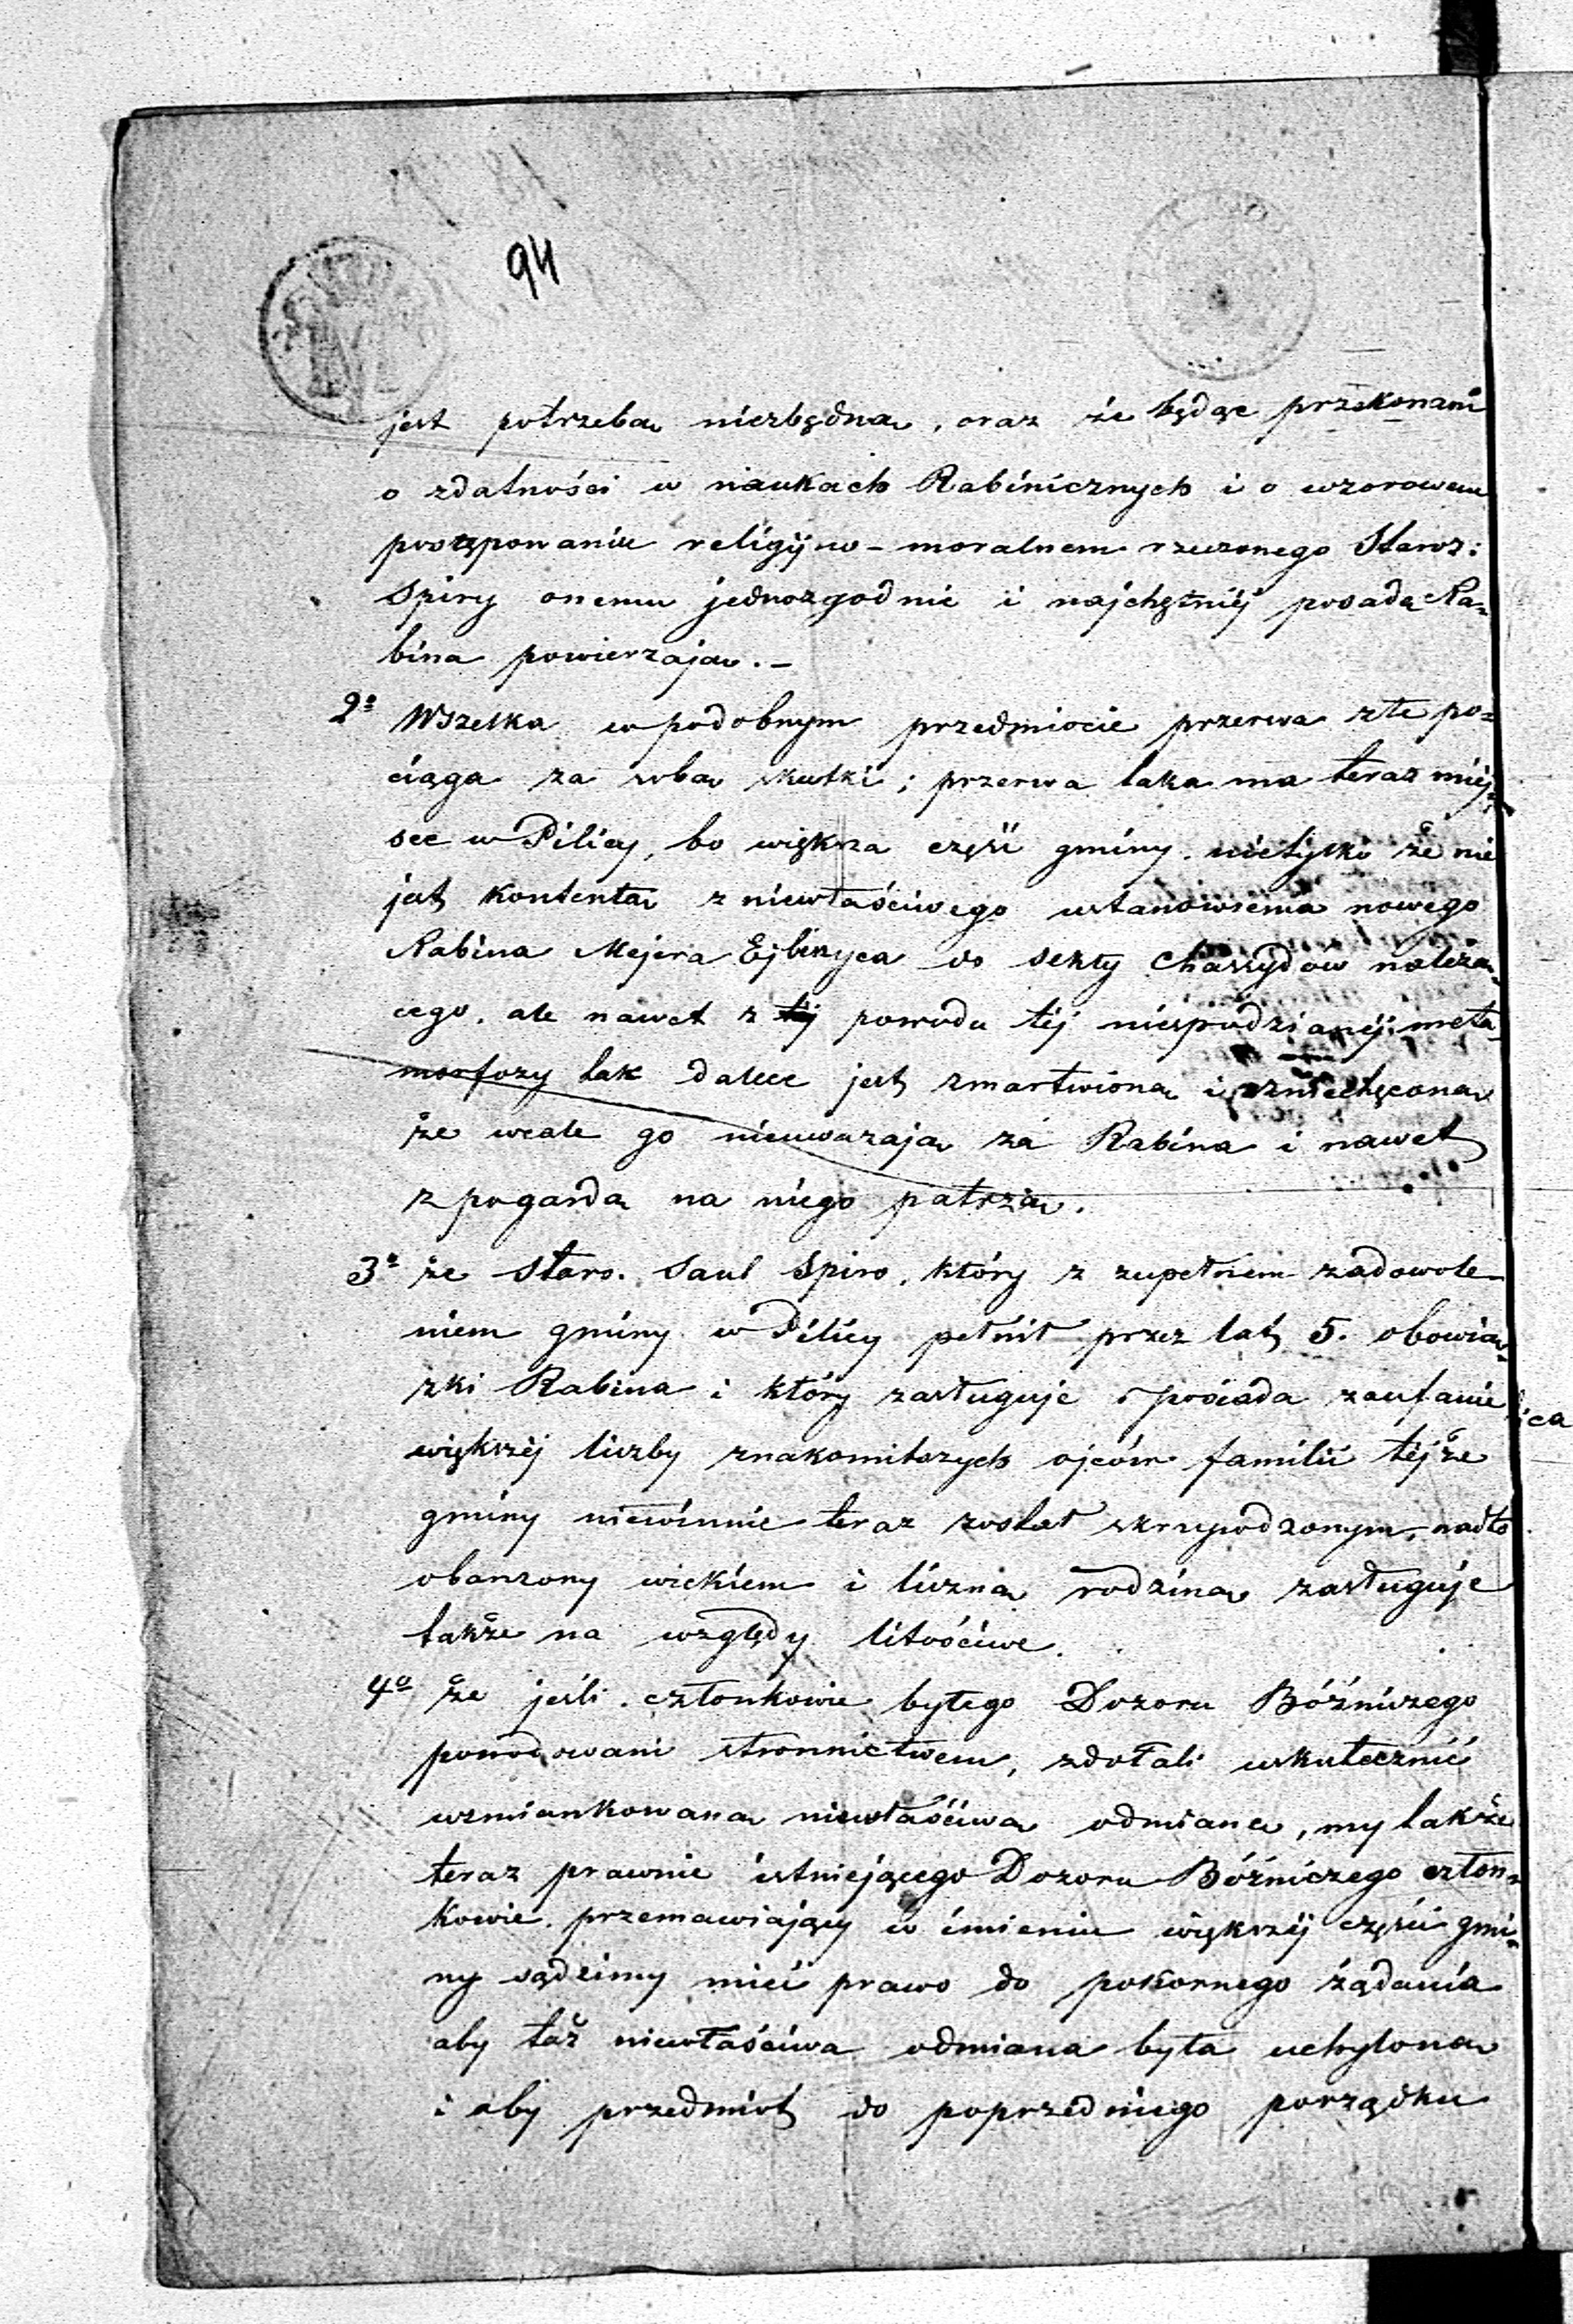 94
jest potrzebą niezbędną, oraz że będąc przekonani
o zdatności w naukach Rabinicznych i o wzorowem
postępowaniu religijno-moralnem rzeczonego Staroz:
Spiry onemu jednozgodnie i najchętniéj posadę Ra=
bina powierzają.-
2º Wszelka w podobnym przedmiocie przerwa złe po=
ciąga za sobą skutki; przerwa taka ma teraz miej=
sce w Pilicy, bo większa część gminy nietylko że nie
jest kontentą z niewłaściwego ustanowienia nowego
Rabina Mejera Ejbeszyca do sekty Chassydów należą=
cego, ale nawet z powodu téj niespodzianéj meta=
morfozy tak dalece jest zmartwioną i zniechęconą
że wcale go nieuważają za Rabina i nawet
z pogardą na niego patrzą.
3º że Staro. Saul Spiro, który z zupełnem zadowole=
niem gminy w Pilicy pełnił przez lat 5. obowią=
zki Rabina i który zasługuje i posiada zaufanie
większéj liczby znakomitszych ojców familii téjże
gminy niewinnie teraz został skrzywdzonym, nadto
obarczony wiekiem i liczną rodziną zasługuje
także na względy litościwe.
4º że jeśli członkowie byłego Dozoru Bóźniczego
powodowani stronnictwem, zdołali uskutecznić
wzmiankowaną niewłaściwą odmianę, my także
teraz prawnie istniejącego Dozoru Bóźniczego człon=
kowie przemawiający w imieniu większéj części gmi=
ny sądzimy mieć prawo do pokornego żądania
aby taż niewłaściwa odmiana była uchyloną
i aby przedmiot do poprzedniego porządku